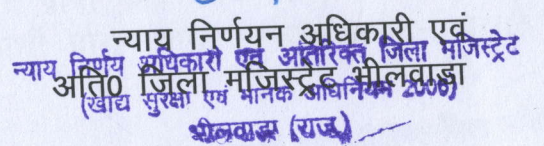 न्याय निर्णयन अधिकारी एवं
न्याय निर्णय अधिकारी एवं अतिरिक्त जिला मजिस्ट्रेट
अति0 जिला मजिस्ट्रेट भीलवाडा
(खाद्य सुरक्षा एवं मानक अधिनियम 2006)
भीलवाडा (राज.)